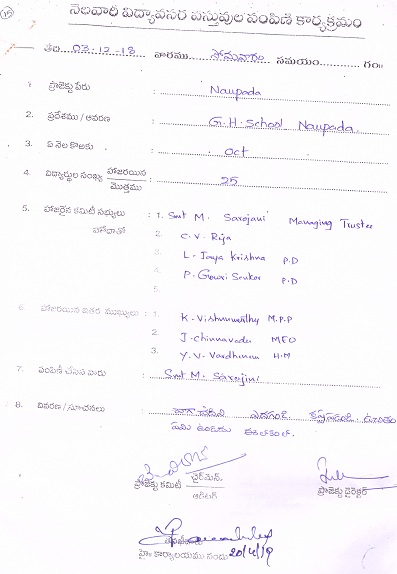 15
నెలవారీ విద్యావసర వస్తువుల పంపిణీ కార్యక్రమం
తేది 03-12-18 వారము సోమవారం సమయం గం॥
1. ప్రాజెక్టు పేరు : Naupada
2. ప్రదేశము / ఆవరణ : G.H-School Naupada.
3. ఏ నెల కొఱకు : Oct
4. విద్యార్థుల సంఖ్య హాజరయిన మొత్తము : 25
5. హాజరైన కమిటీ సభ్యులు : 1. Smt M. Sarojani Managing Trustee
హోదాతో 2. C.V. Raja
3. L. Jaya Krishna P.D
4. P. Gowri Sankar P.D
5.
6. హాజరయిన ఇతర ముఖ్యులు : 1. K. Vishnumurthy M.P.P
2. J. Chinnavadu MEO
3. Y.V. Vardhanam H.M
7. పంపిణీ చేసిన వారు : Smt M. Sarojini
8. వివరణ / సూచనలు : బాగా చదివి ఎదగండి
ప్రాజెక్టు కమిటీ ఛైర్మెన్. ప్రాజెక్టు డైరెక్టర్
ఆడిటర్
హై కార్యాలయము నందు 20/4/19